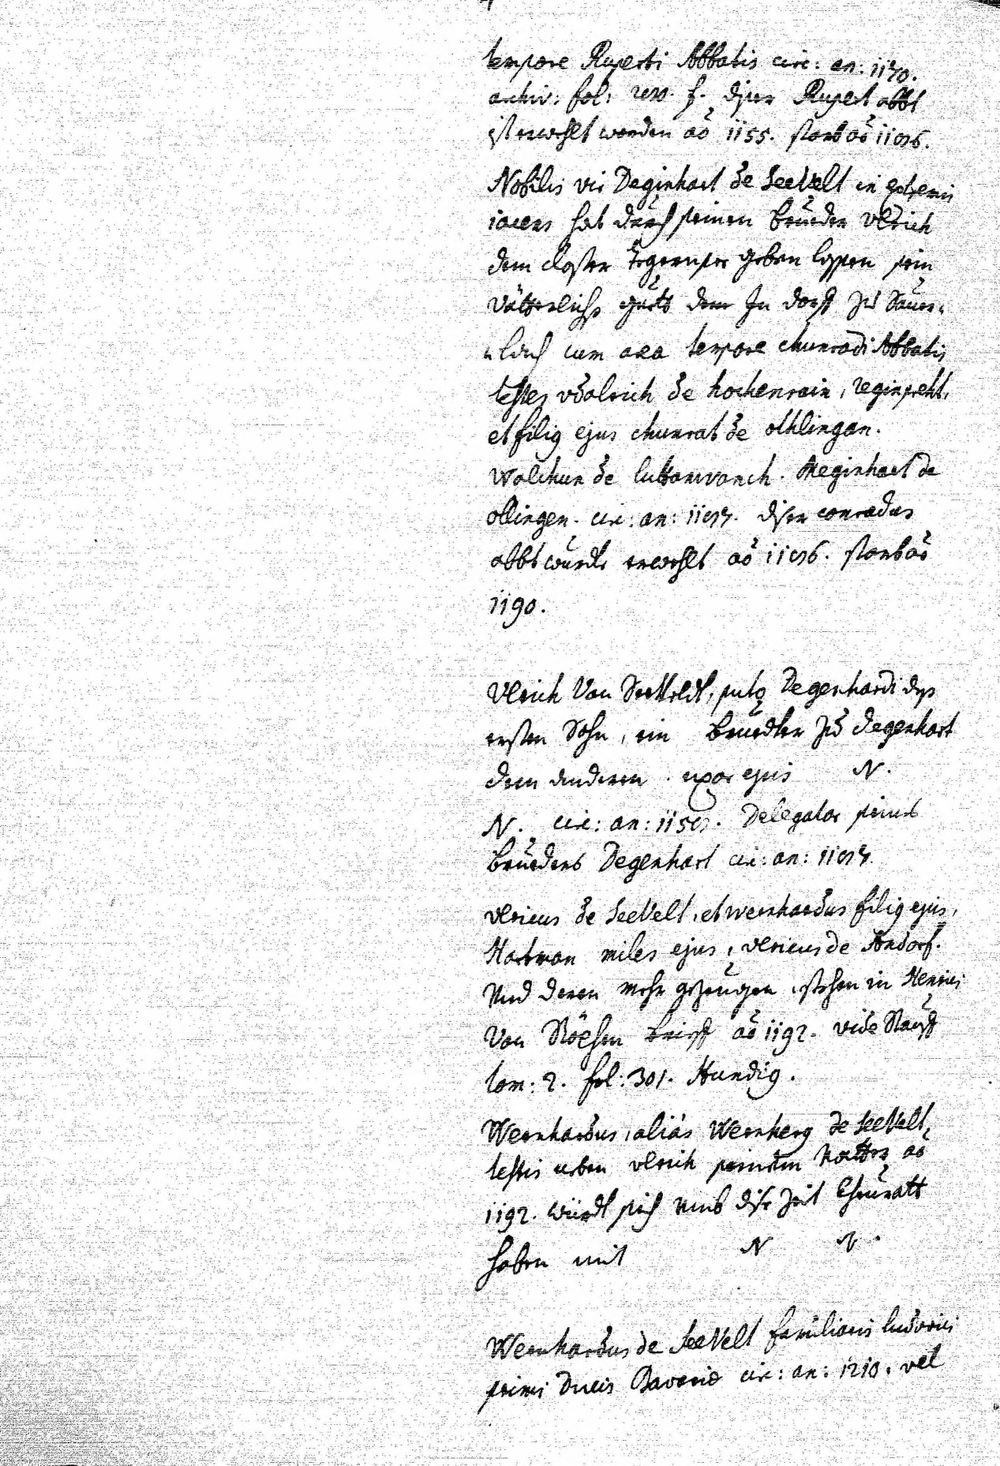 tempore Ruperti Abbatis circ: an: 1170.
archiv: fol: f. diser Rupert abbt
ist erwehlt worden aõ 1155. starb aõ 1186.
Nobilis vir Deginhart de SeeVelt in extremis
iacens hat durch seinen brueder Vlrich
dem closter Tegernsee geben lassen sein
vätterliches guett dem In dorff zu Sauer-
-loch cum area tempore chunradi Abbatis
testes vdalrich de hochenrain, reginpreht,
et filig ejus chunrat de othlingan.
Walchun de luttenwanch. Meginhart de
ollingen. cir: an: 1187. diser conradus
abbt wurde erwehlt aõ 1186. starb aõ
1190.
Vlrich Von SeeVeldt, puto Degenhardi des
ersten Sohn, ein brueder zu degenhart
dem anderen. uxor ejus N.
N. cir: an: 1180. Delegator seines
brueders Degenhart cir: an: 1187.
Vlricus de SeeVelt, et wernhardus filig ejus,
Hartman miles ejus, Vlricus de Andorf.
Vnd deren mehr gezeugen, stehen in Henrici
Von brieff aõ 1192. vide
tom: 2. fol: 301. Hundig.
Wernhardus, aliàs Wernherg de SeeVelt,
testis neben Vlrich seinem Vatter aõ
1192. würdt sich umb dise zeit Cheuratt
haben mit N N.
Wernhardus de SeeVelt familiaris ludovici
primi Ducis Bavariae cir: an: 1210. vel